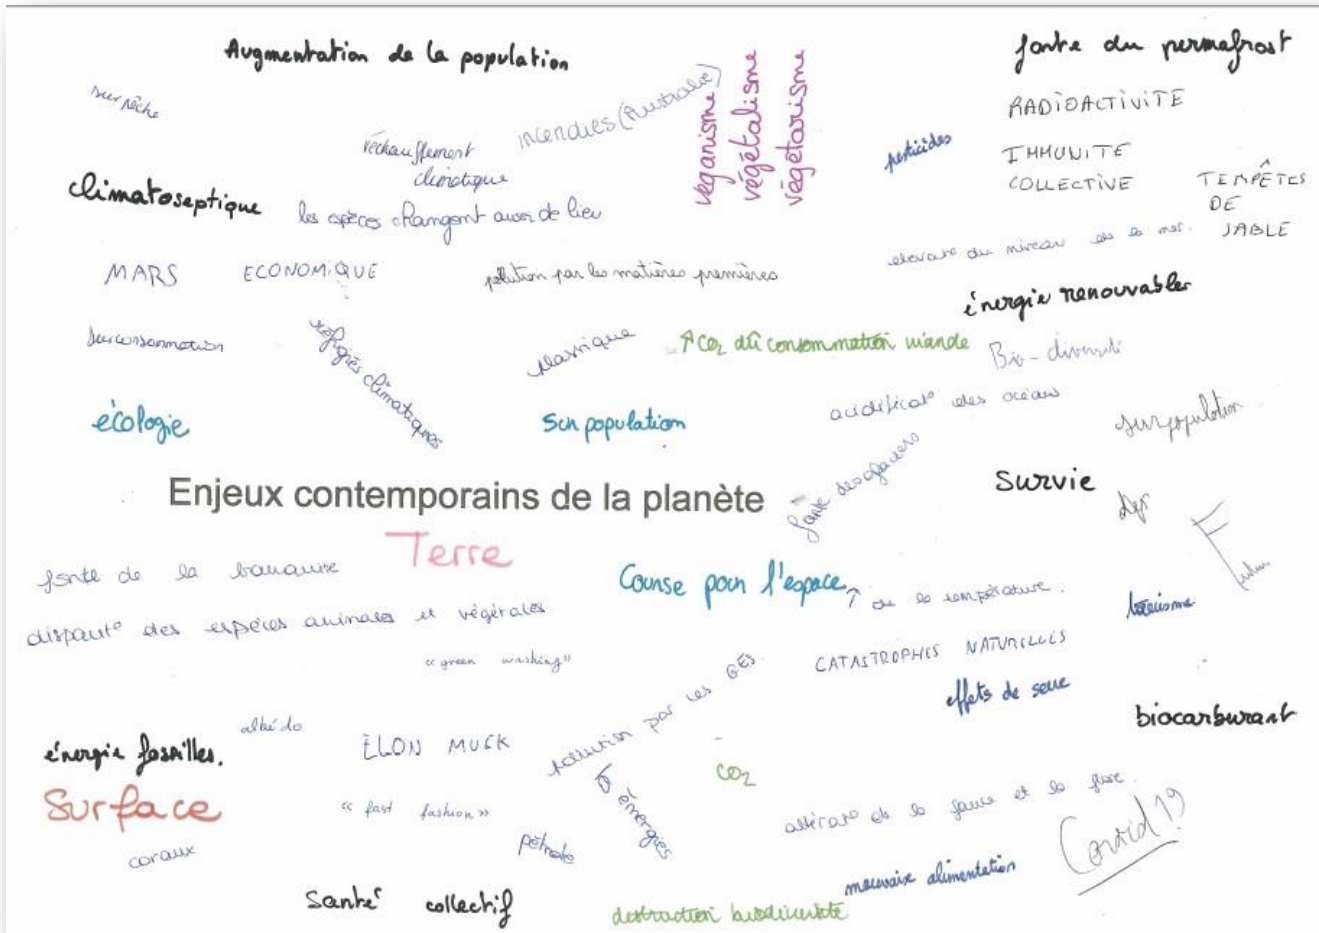 Augmentation de la population
fonte du permafrost
sur pêche
incendies (Australie)
véganisme
végétalisme
végétarisme
RADIOACTIVITE
réchauffement
climatique
pesticides
IMMUNITE
COLLECTIVE
TEMPÊTES
DE
SABLE
climatoseptique
les espèces changent aussi de lieu
elevat° du niveau de la mer.
MARS
ECONOMIQUE
polution par les matières premières
énergie renouvabler
surconsommation
réfugiés climatiques
plastique
↑ CO2 dû consommation viande
Bio-diversité
acidificat° des océans
écologie
Surpopulation
surpopulation
fonte des glaciers
Enjeux contemporains de la planète
Survie
Terre
fonte de la banquise
Course pour l'espace
↑ de la température.
disparit° des espèces animales et végétales
"green washing"
CATASTROPHES NATURELLES
pollution par les GES
effets de serre
biocarburant
albédo
énergie fossilles.
ELON MUSK
CO2
Surface
"fast fashion"
énergies
altérat° de la faune et la flore.
Covid 19
coraux
pétrole
mauvaise alimentation
Santé collectif
destruction biodiversité